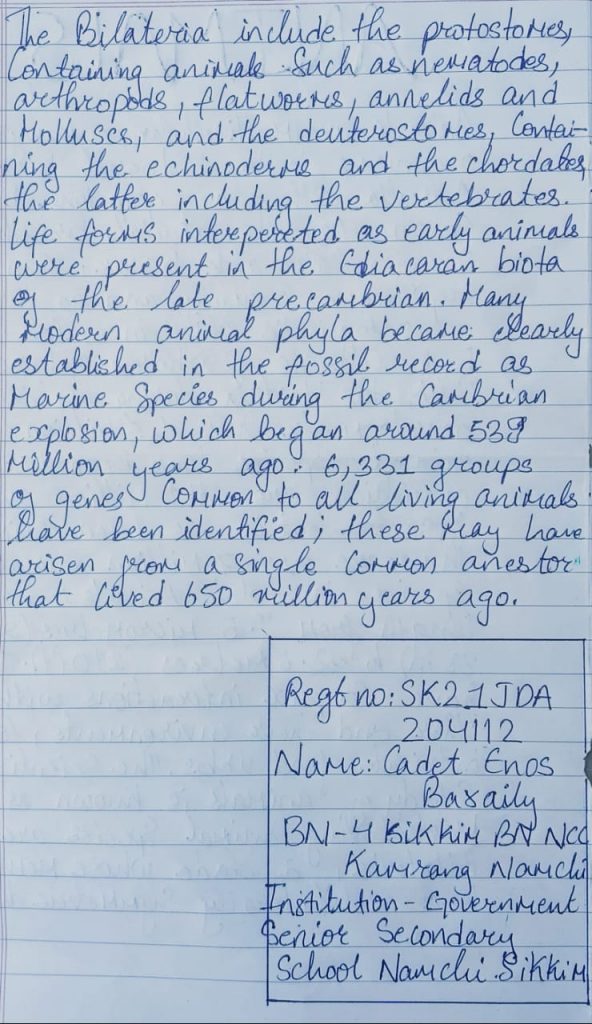 The Bilateria include the protostomes,
Containing animals such as nematodes,
arthropods, flatworms, annelids and
Molluscs, and the deuterostomes, Contai-
ning the echinoderms and the chordates,
the latter including the vertebrates.
life forms interpereted as early animals
were present in the Ediacaran biota
of the late precambrian. Many
Modern animal phyla became clearly
established in the fossil record as
Marine Species during the Cambrian
explosion, which began around 539
Million years ago. 6,331 groups
of genes Common to all living animals
have been identified; these may have
arisen from a single Common anestor
that lived 650 million years ago.
Regt no: SK21JDA
204112
Name: Cadet Enos
Baraily
BN-4 Sikkim BN NCC
Kamrang Namchi
Institution - Government
Senior Secondary
School Namchi Sikkim